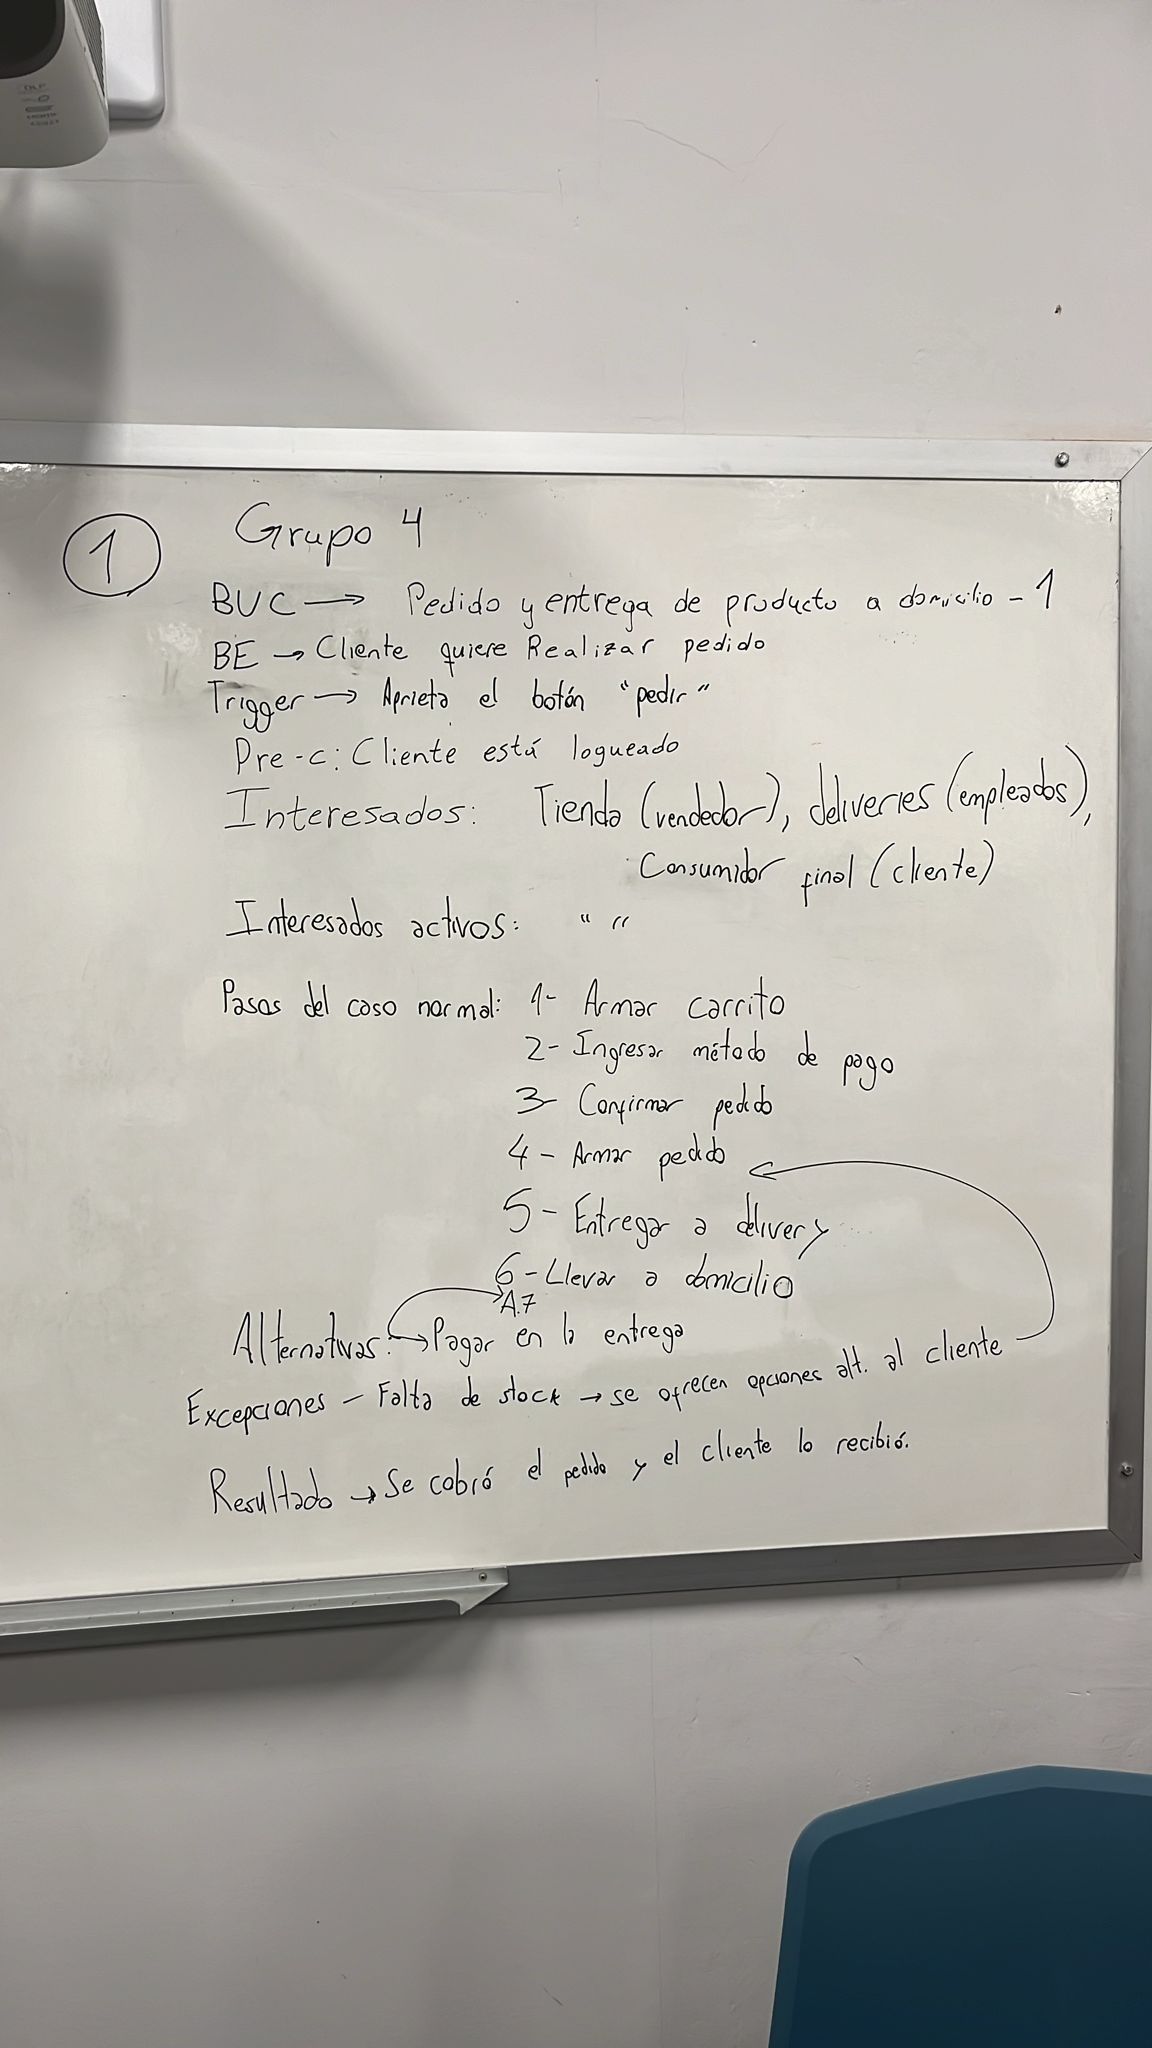 DLP
1
Grupo 4
BUC → Pedido y entrega de producto a domicilio - 1
BE → Cliente quiere Realizar pedido
Trigger → Aprieta el botón "pedir"
Pre-c: Cliente está logueado
Interesados: Tienda (vendedor), deliveries (empleados),
Consumidor final (cliente)
Interesados activos: " "
Pasos del caso normal: 1- Armar carrito
2- Ingresar método de pago
3- Confirmar pedido
4- Armar pedido
5- Entregar a delivery
6- Llevar a domicilio
A.7
Alternativas: → Pagar en la entrega
Excepciones - Falta de stock → se ofrecen opciones alt. al cliente
Resultado → Se cobró el pedido y el cliente lo recibió.